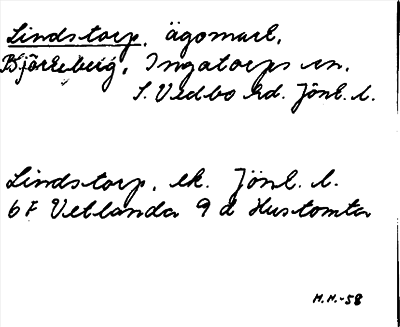 Lindstorp, ägomark,
Björkeberg, Ingatorps sn.
S. Vedbo hd. Jönk. l.
Lindstorp, ek. Jönk. l.
6F Vetlanda 9 d Hustomta
M.M.-58